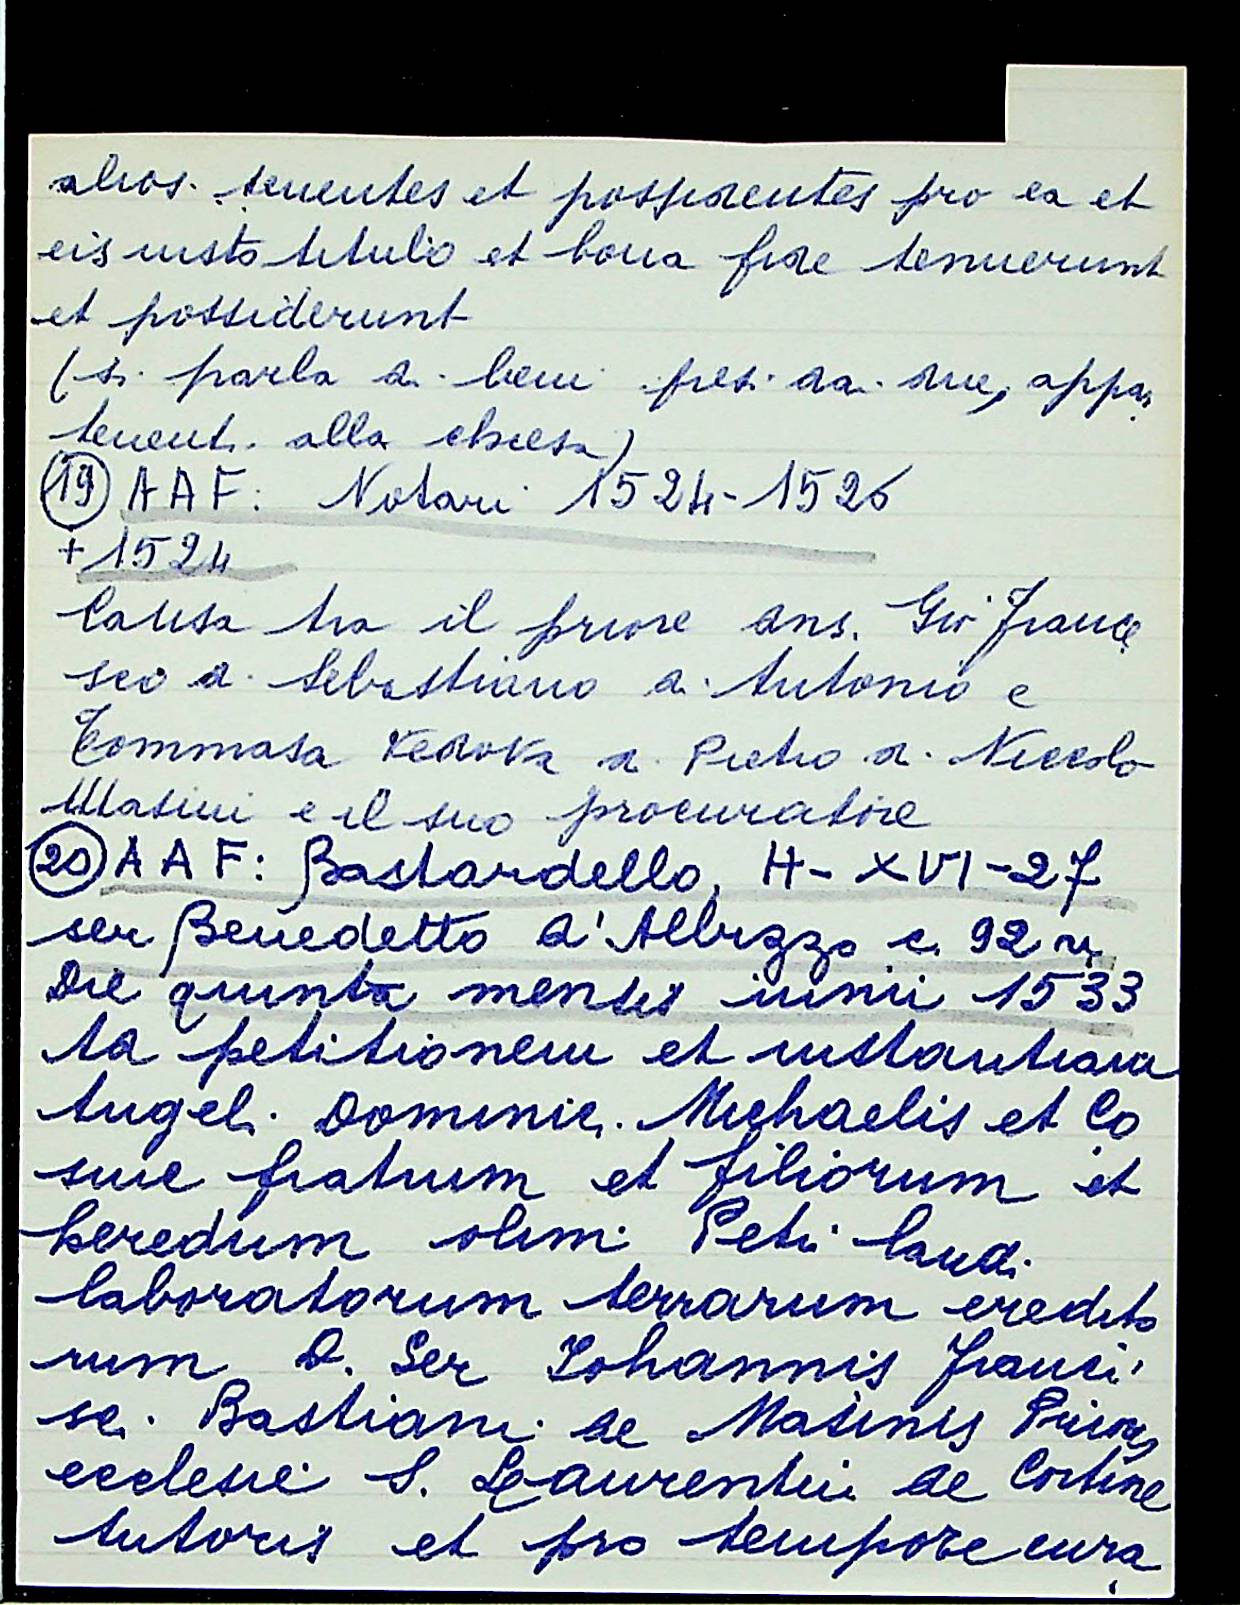 alios tenentes et possidentes pro ea et
eis iusto titulo et bona fide tenuerunt
et possiderunt
(si parla di beni presi da due, appar
tenenti alla chiesa)
19 AAF: Notari 1524-1526
+ 1524
Causa tra il priore ans. Gio France
sco di Sebastiano di Antonio e
Tommasa vedova di Pietro di Niccolo
Masini e il suo procuratore
20 AAF: Bastardello, H-XVI-27
ser Benedetto d'Albizzo c. 92 r,
Die quinta mensis iunii 1533
ta petitionem et instantiam
Angeli Dominici Michaelis et Co
sme fratrum et filiorum et
heredum olim Petri Landi
laboratorum terrarum credito
rum D. Ser Iohannis Franci
sci Bastiani de Masinis Prioris
ecclesie S. Laurentii de Cortine
tutoris et pro tempore cura